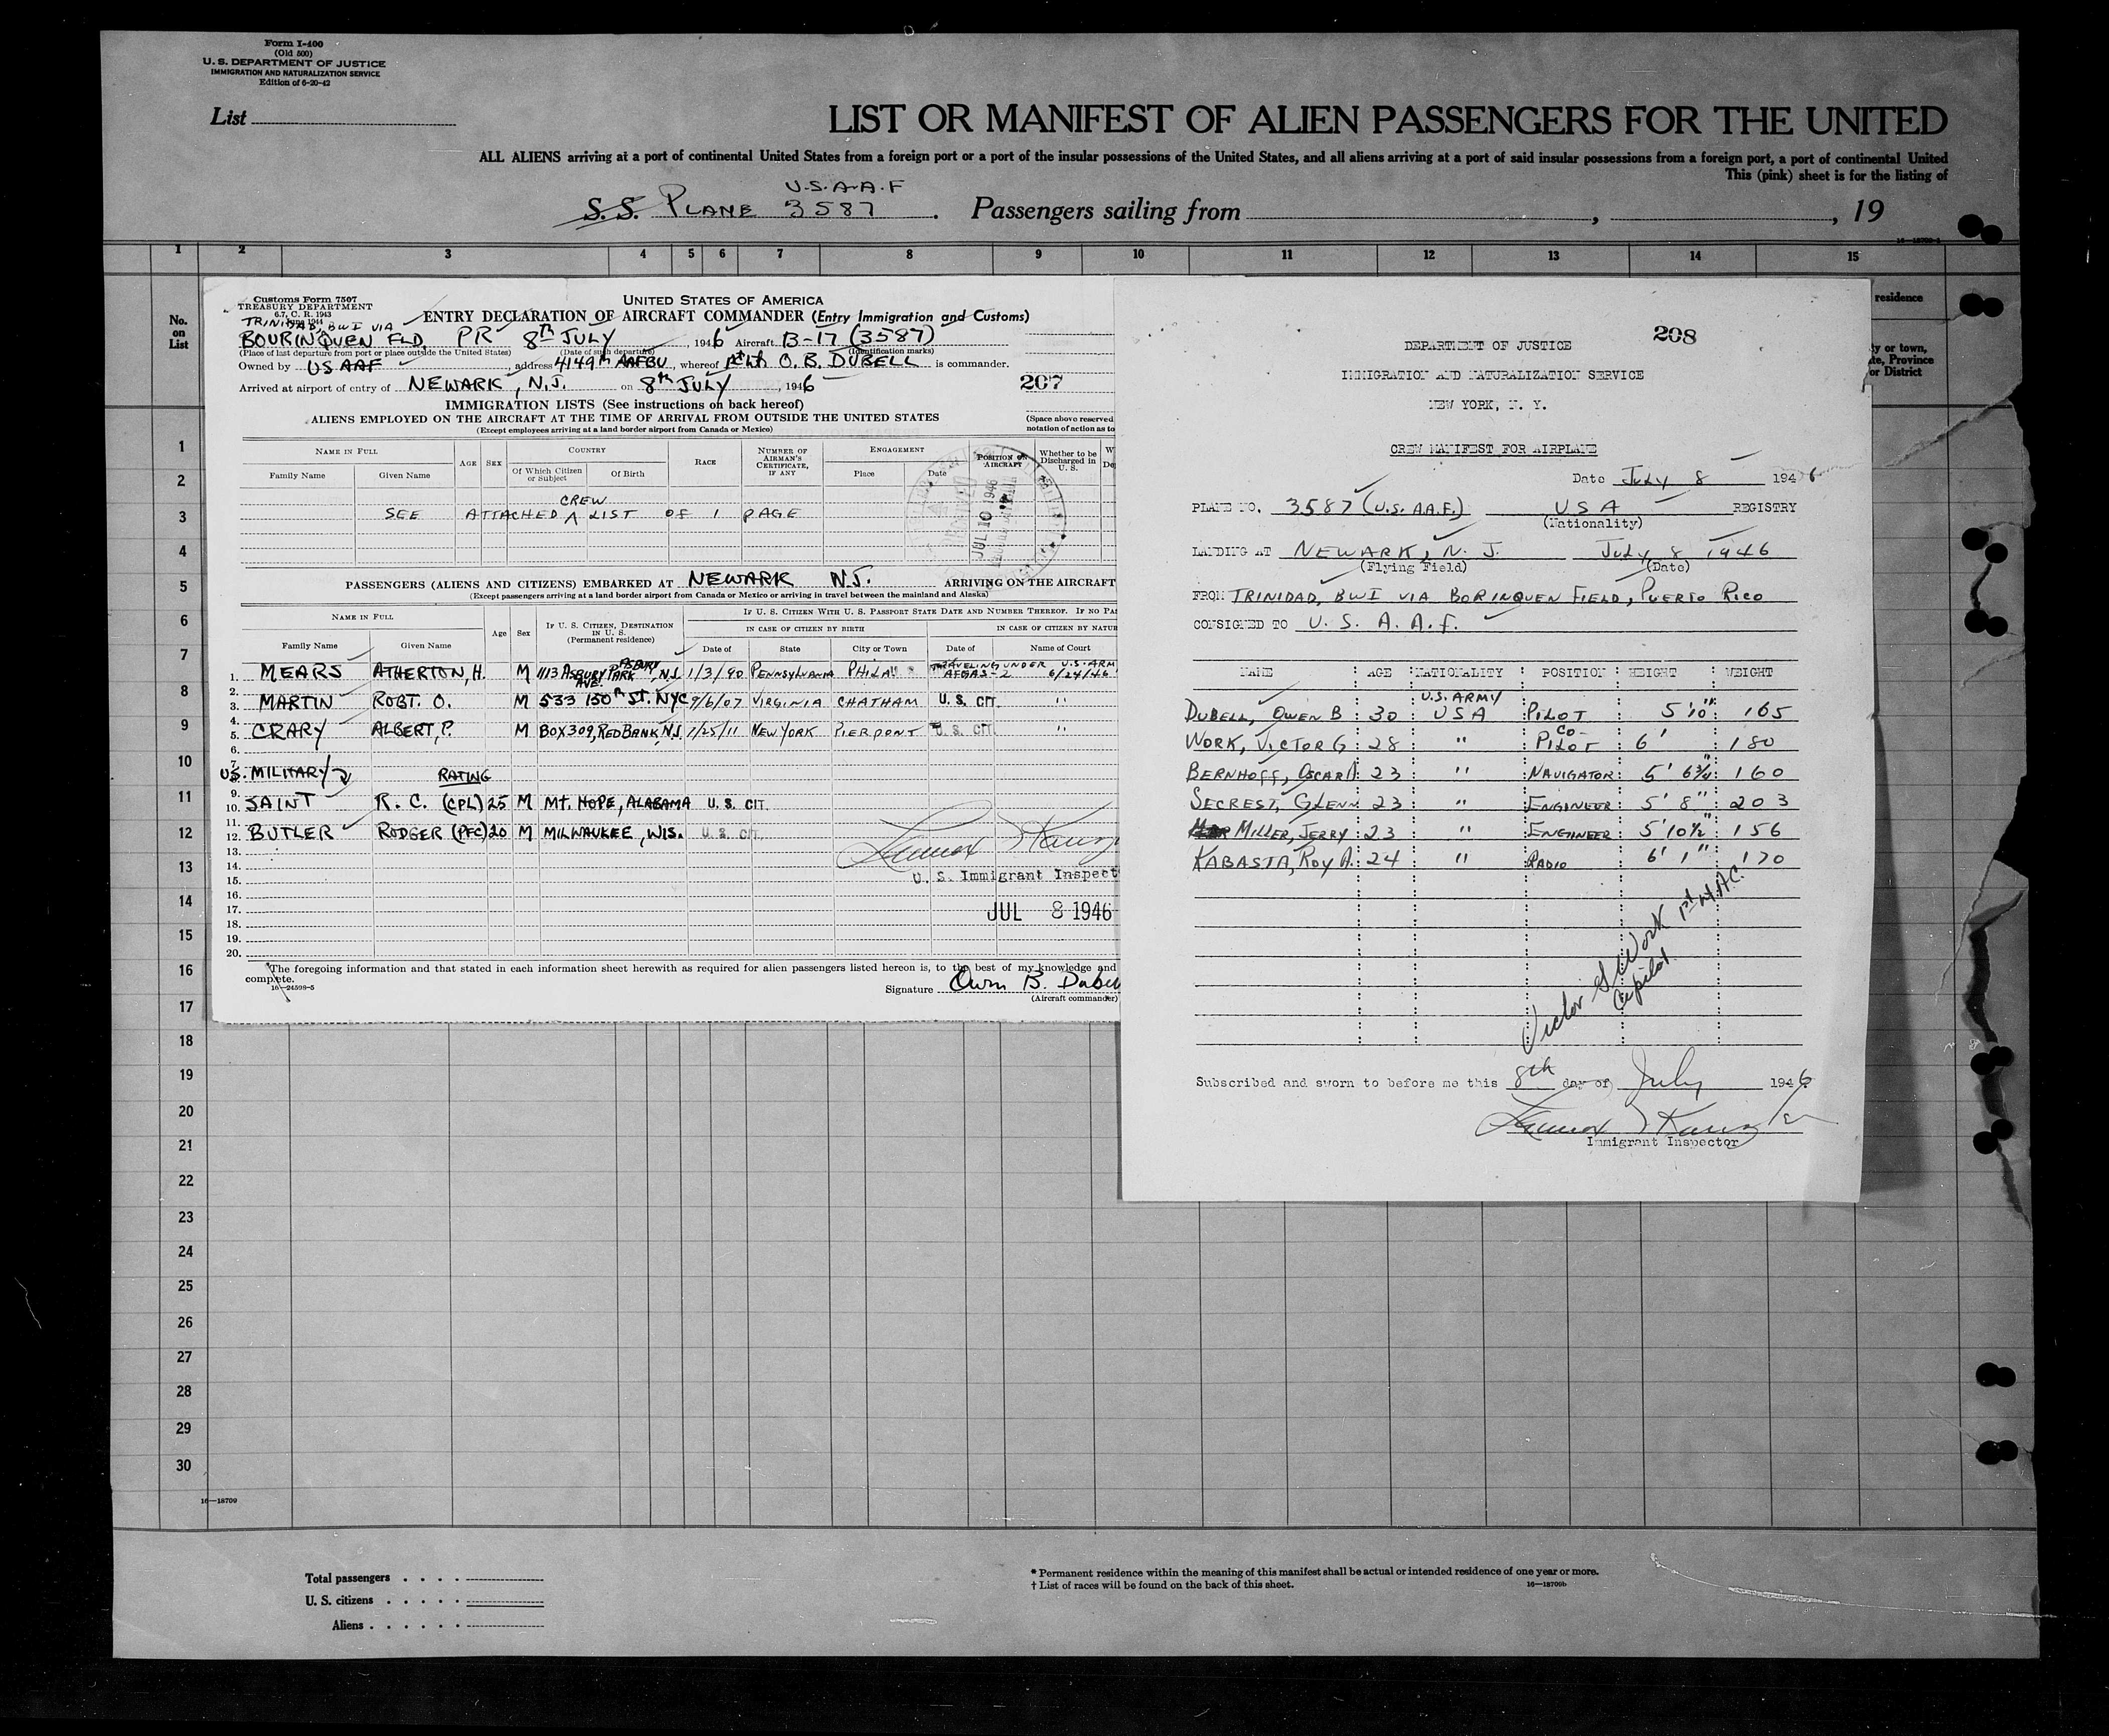 Form I-400
(Old 500)
U. S. DEPARTMENT OF JUSTICE
IMMIGRATION AND NATURALIZATION SERVICE
Edition of 6-20-42
List
LIST OR MANIFEST OF ALIEN PASSENGERS FOR THE UNITED
ALL ALIENS arriving at a port of continental United States from a foreign port or a port of the insular possessions of the United States, and all aliens arriving at a port of said insular possessions from a foreign port, a port of continental United
This (pink) sheet is for the listing of
U.S.A.A.F
S.S. PLANE 3587. Passengers sailing from , , 19
1 2 3 4 5 6 7 8 9 10 11 12 13 14 15
No. on List
residence
or town,
Province
or District
Customs Form 7507
TREASURY DEPARTMENT
6.7, C. R. 1943
June 1944
UNITED STATES OF AMERICA
ENTRY DECLARATION OF AIRCRAFT COMMANDER (Entry Immigration and Customs)
TRINIDAD, BWI VIA
BOURINQUEN FLD, PR 8th JULY, 1946 Aircraft B-17 (3587)
(Place of last departure from port or place outside the United States) (Date of such departure) (Identification marks)
Owned by US AAF, address 4149th AAFBU, whereof 1st Lt. O. B. DUBELL is commander.
Arrived at airport of entry of NEWARK, N.J. on 8th JULY, 1946
207
IMMIGRATION LISTS (See instructions on back hereof)
ALIENS EMPLOYED ON THE AIRCRAFT AT THE TIME OF ARRIVAL FROM OUTSIDE THE UNITED STATES
(Except employees arriving at a land border airport from Canada or Mexico)
(Space above reserved
notation of action as to
NAME IN FULL AGE SEX COUNTRY RACE NUMBER OF AIRMAN'S CERTIFICATE, IF ANY ENGAGEMENT POSITION ON AIRCRAFT Whether to be Discharged in U. S.
Family Name Given Name Of Which Citizen or Subject Of Birth Place Date
CREW
SEE ATTACHED ^ LIST OF 1 PAGE
JUL 10 1946
PASSENGERS (ALIENS AND CITIZENS) EMBARKED AT NEWARK N.J. ARRIVING ON THE AIRCRAFT
(Except passengers arriving at a land border airport from Canada or Mexico or arriving in travel between the mainland and Alaska)
NAME IN FULL Age Sex IF U. S. CITIZEN, DESTINATION IN U. S. (Permanent residence) IF U. S. CITIZEN WITH U. S. PASSPORT STATE DATE AND NUMBER THEREOF. IF NO
IN CASE OF CITIZEN BY BIRTH IN CASE OF CITIZEN BY
Family Name Given Name Date of State City or Town Date of Name of Court
1. MEARS ATHERTON, H. M 1113 ASBURY AVE. ASBURY PARK, N.J. 1/3/90 PENNSYLVANIA PHILA TRAVELING UNDER U.S. ARM AFGAS-2 6/24/46
2.
3. MARTIN ROBT. O. M 533 150th ST. NYC 9/6/07 VIRGINIA CHATHAM U. S. CIT. "
4.
5. CRARY ALBERT, P. M BOX 309, RED BANK, N.J. 1/25/11 NEW YORK PIERPONT U. S. CIT. "
6.
7.
8. U.S. MILITARY RATING
9.
10. SAINT R. C. (CPL) 25 M MT. HOPE, ALABAMA U. S. CIT.
11.
12. BUTLER RODGER (PFC) 20 M MILWAUKEE, WIS. U. S. CIT.
13.
14.
15. U. S. Immigrant Inspect
16.
17. JUL 8 1946
18.
19.
20.
The foregoing information and that stated in each information sheet herewith as required for alien passengers listed hereon is, to the best of my knowledge and
complete.
16—24598-5
Signature Owen B. Dubell
(Aircraft commander)
208
DEPARTMENT OF JUSTICE
IMMIGRATION AND NATURALIZATION SERVICE
NEW YORK, N. Y.
CREW MANIFEST FOR AIRPLANE
Date July 8 1946
PLANE NO. 3587 (U.S. A.A.F.) USA REGISTRY
(Nationality)
LANDING AT NEWARK, N. J. July 8 1946
(Flying Field) (Date)
FROM TRINIDAD, BWI VIA BORINQUEN FIELD, PUERTO RICO
CONSIGNED TO U. S. A. A. F.
NAME AGE NATIONALITY POSITION HEIGHT WEIGHT
U.S. ARMY
DUBELL, OWEN B 30 USA PILOT 5'10" 165
WORK, VICTOR G 28 " CO-PILOT 6' 180
BERNHOFF, OSCAR A 23 " NAVIGATOR 5' 6¾" 160
SECREST, GLENN 23 " ENGINEER 5' 8" 203
MILLER, JERRY 23 " ENGINEER 5'10½" 156
KABASTA, ROY A. 24 " RADIO 6' 1" 170
Victor G Work 1st Lt. A.C.
Copilot
Subscribed and sworn to before me this 8th day of July 1946
Immigrant Inspector
1
2
3
4
5
6
7
8
9
10
11
12
13
14
15
16
17
18
19
20
21
22
23
24
25
26
27
28
29
30
16—18709
Total passengers . . . .
U. S. citizens . . . . .
Aliens . . . . . .
* Permanent residence within the meaning of this manifest shall be actual or intended residence of one year or more.
† List of races will be found on the back of this sheet.
16—18709b